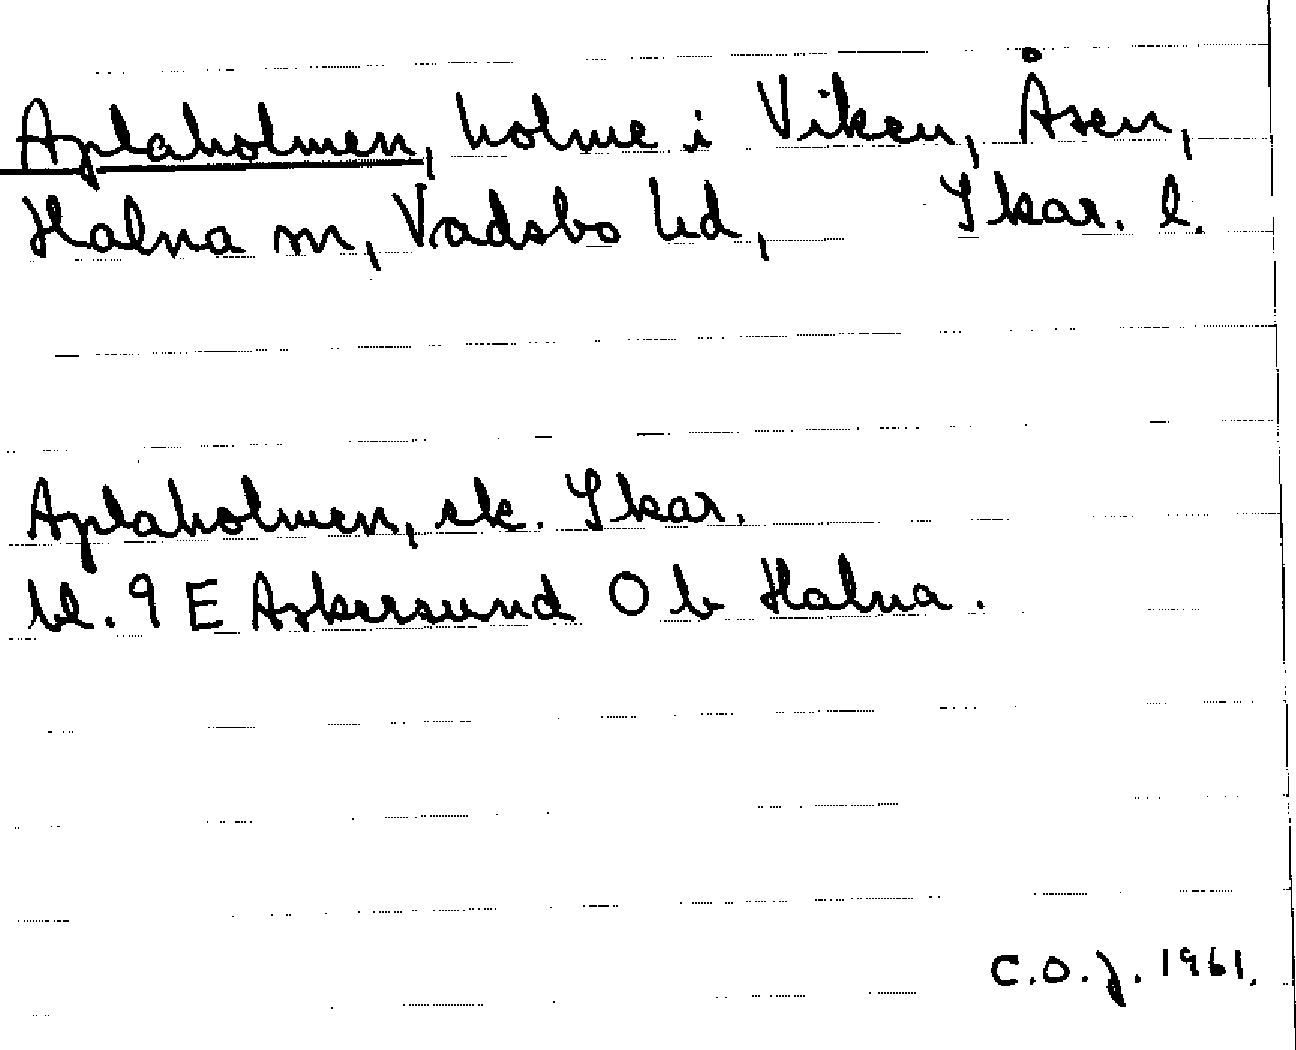 Aplaholmen, holme i Viken, Åsen,
Halna sn, Vadsbo hd, Skar. l.
Aplaholmen, ek. Skar.
bl. 9 E Askersund O b Halna.
C.O.J. 1961.